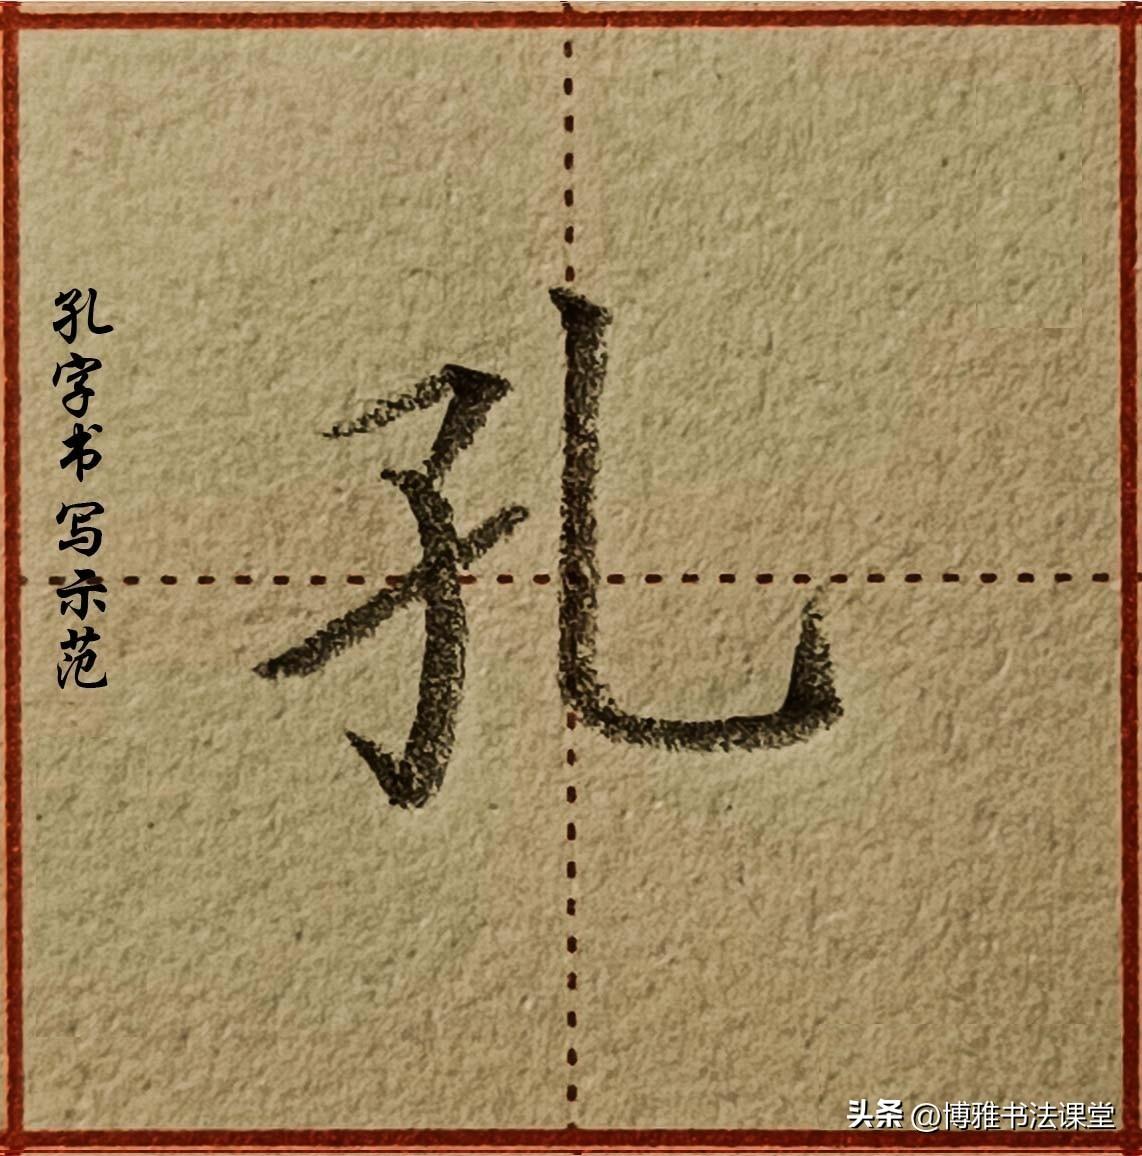 孔字书写示范
孔
头条 @博雅书法课堂